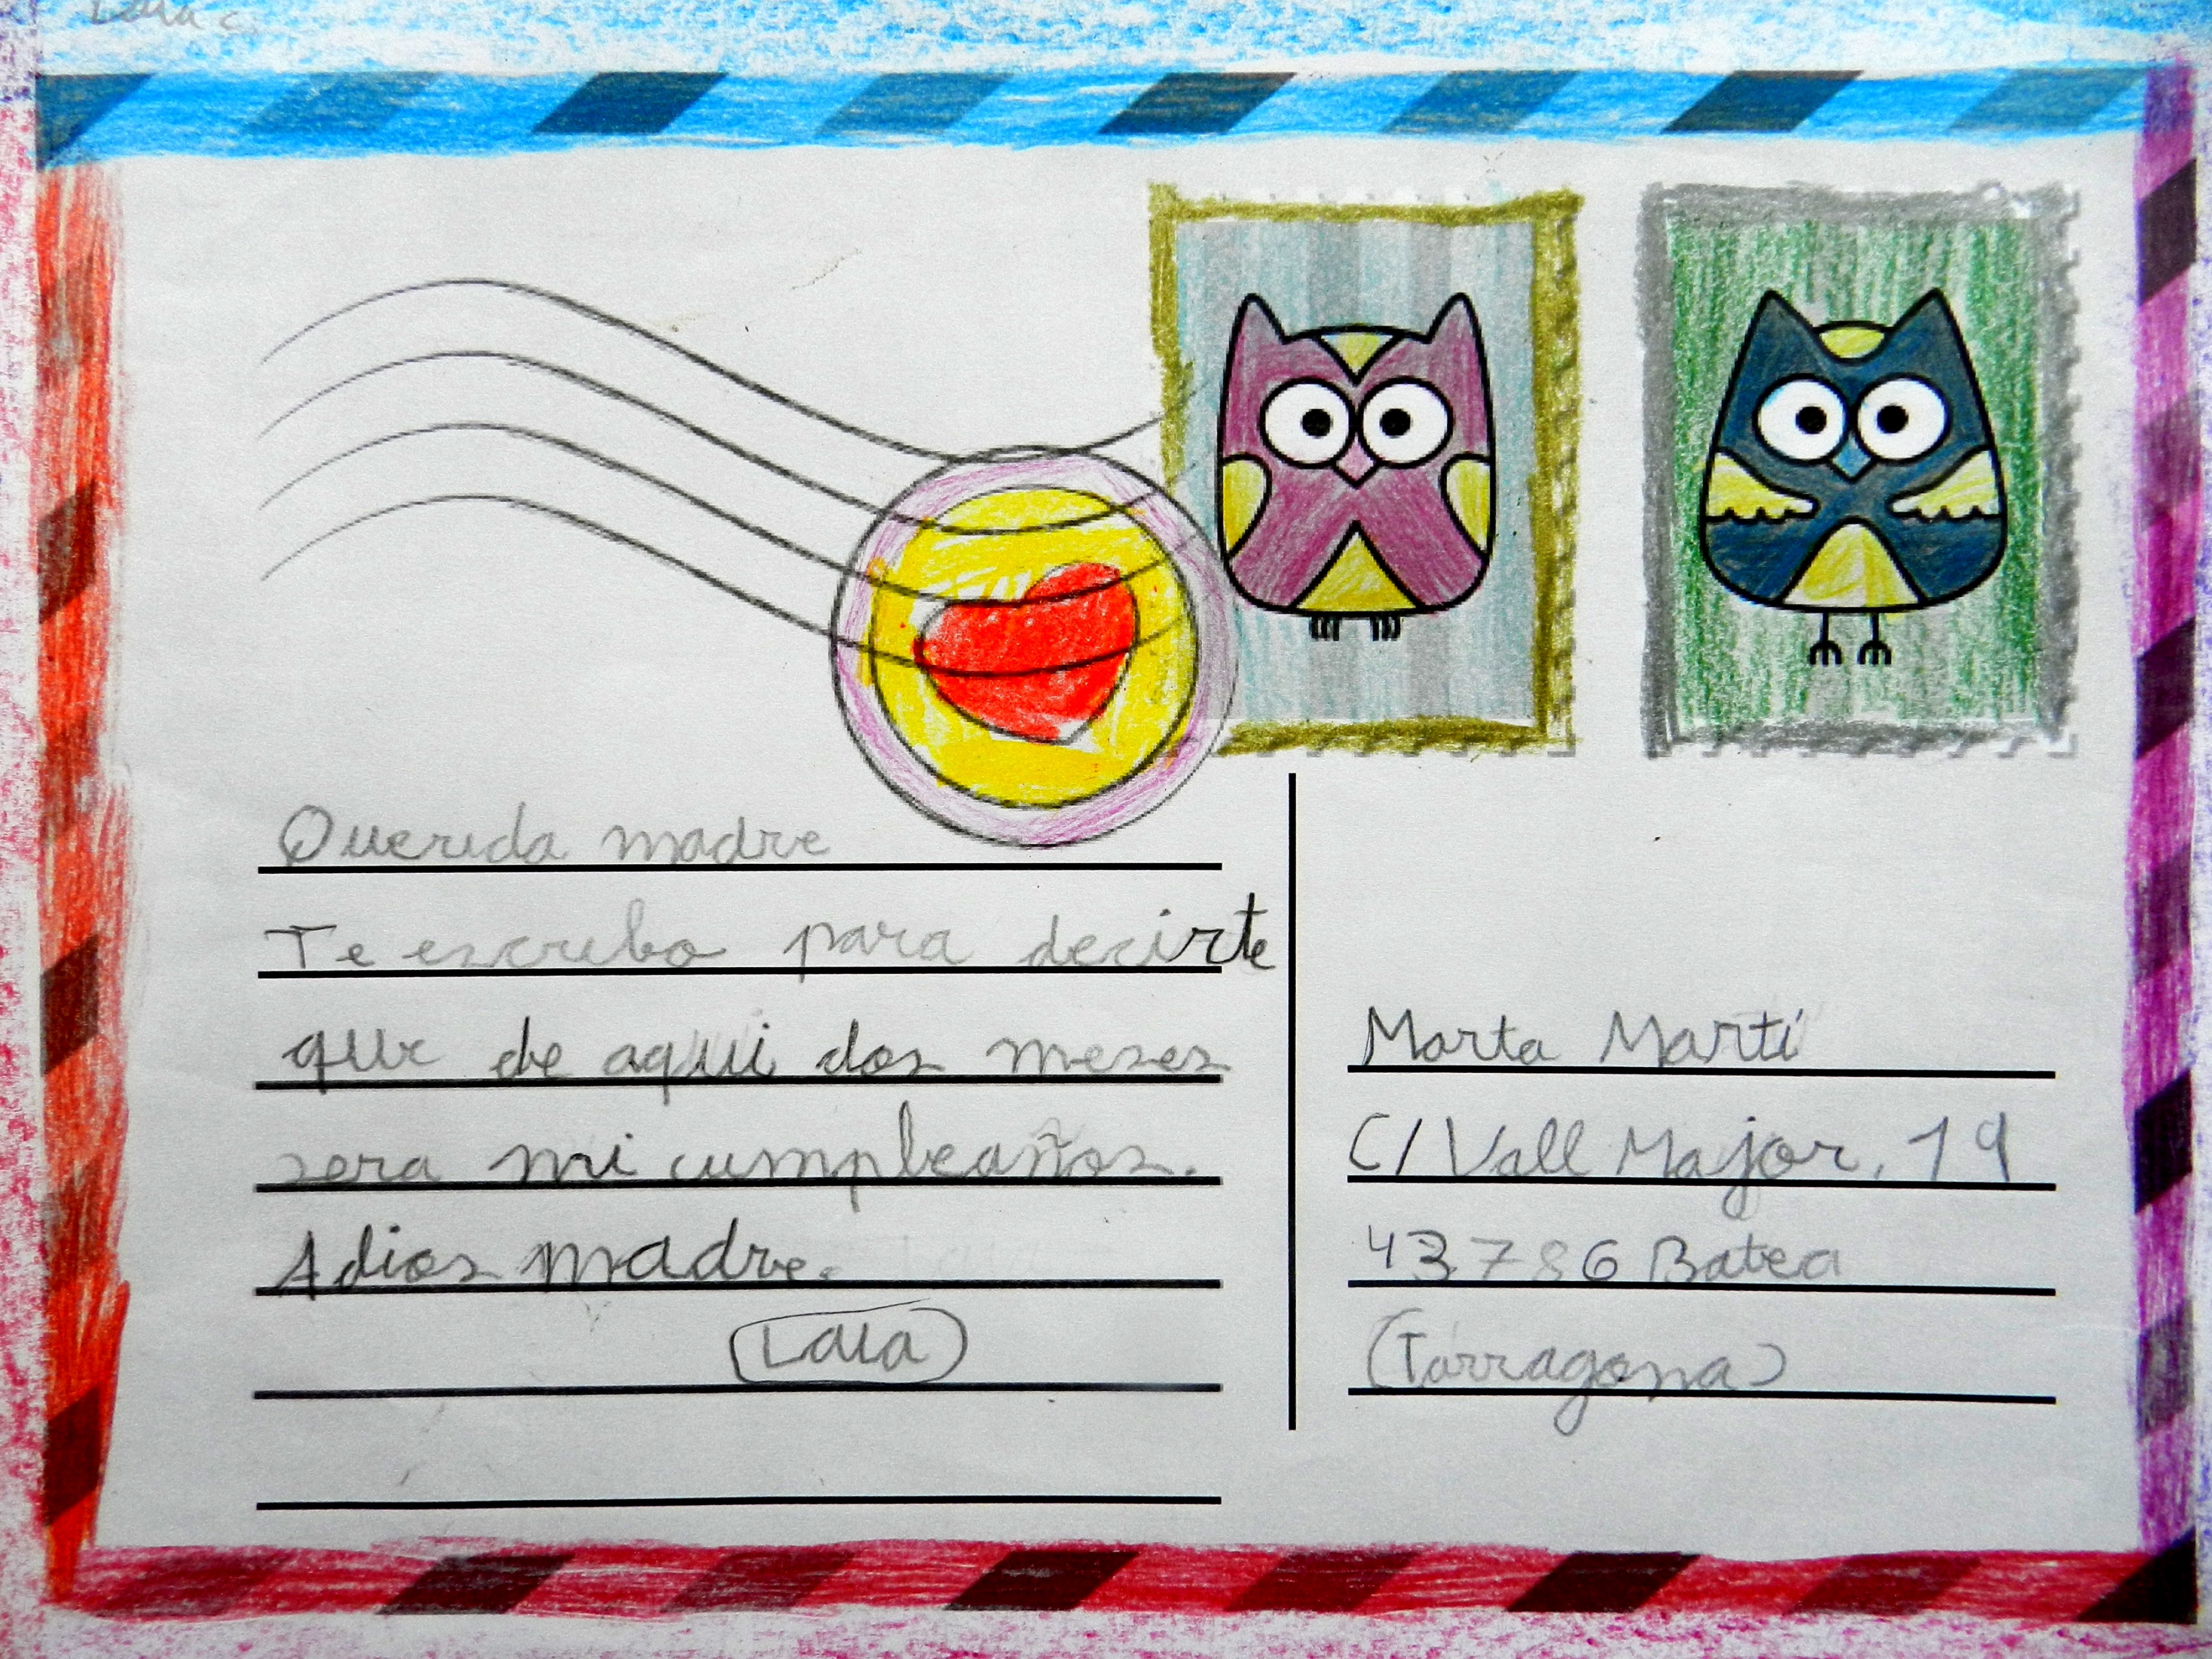 Querida madre
Te escribo para decirte
que de aqui dos meses
sera mi cumpleaños.
Adios madre.
Laia
Marta Martí
C/ Vall Major, 19
43786 Batea
(Tarragona)